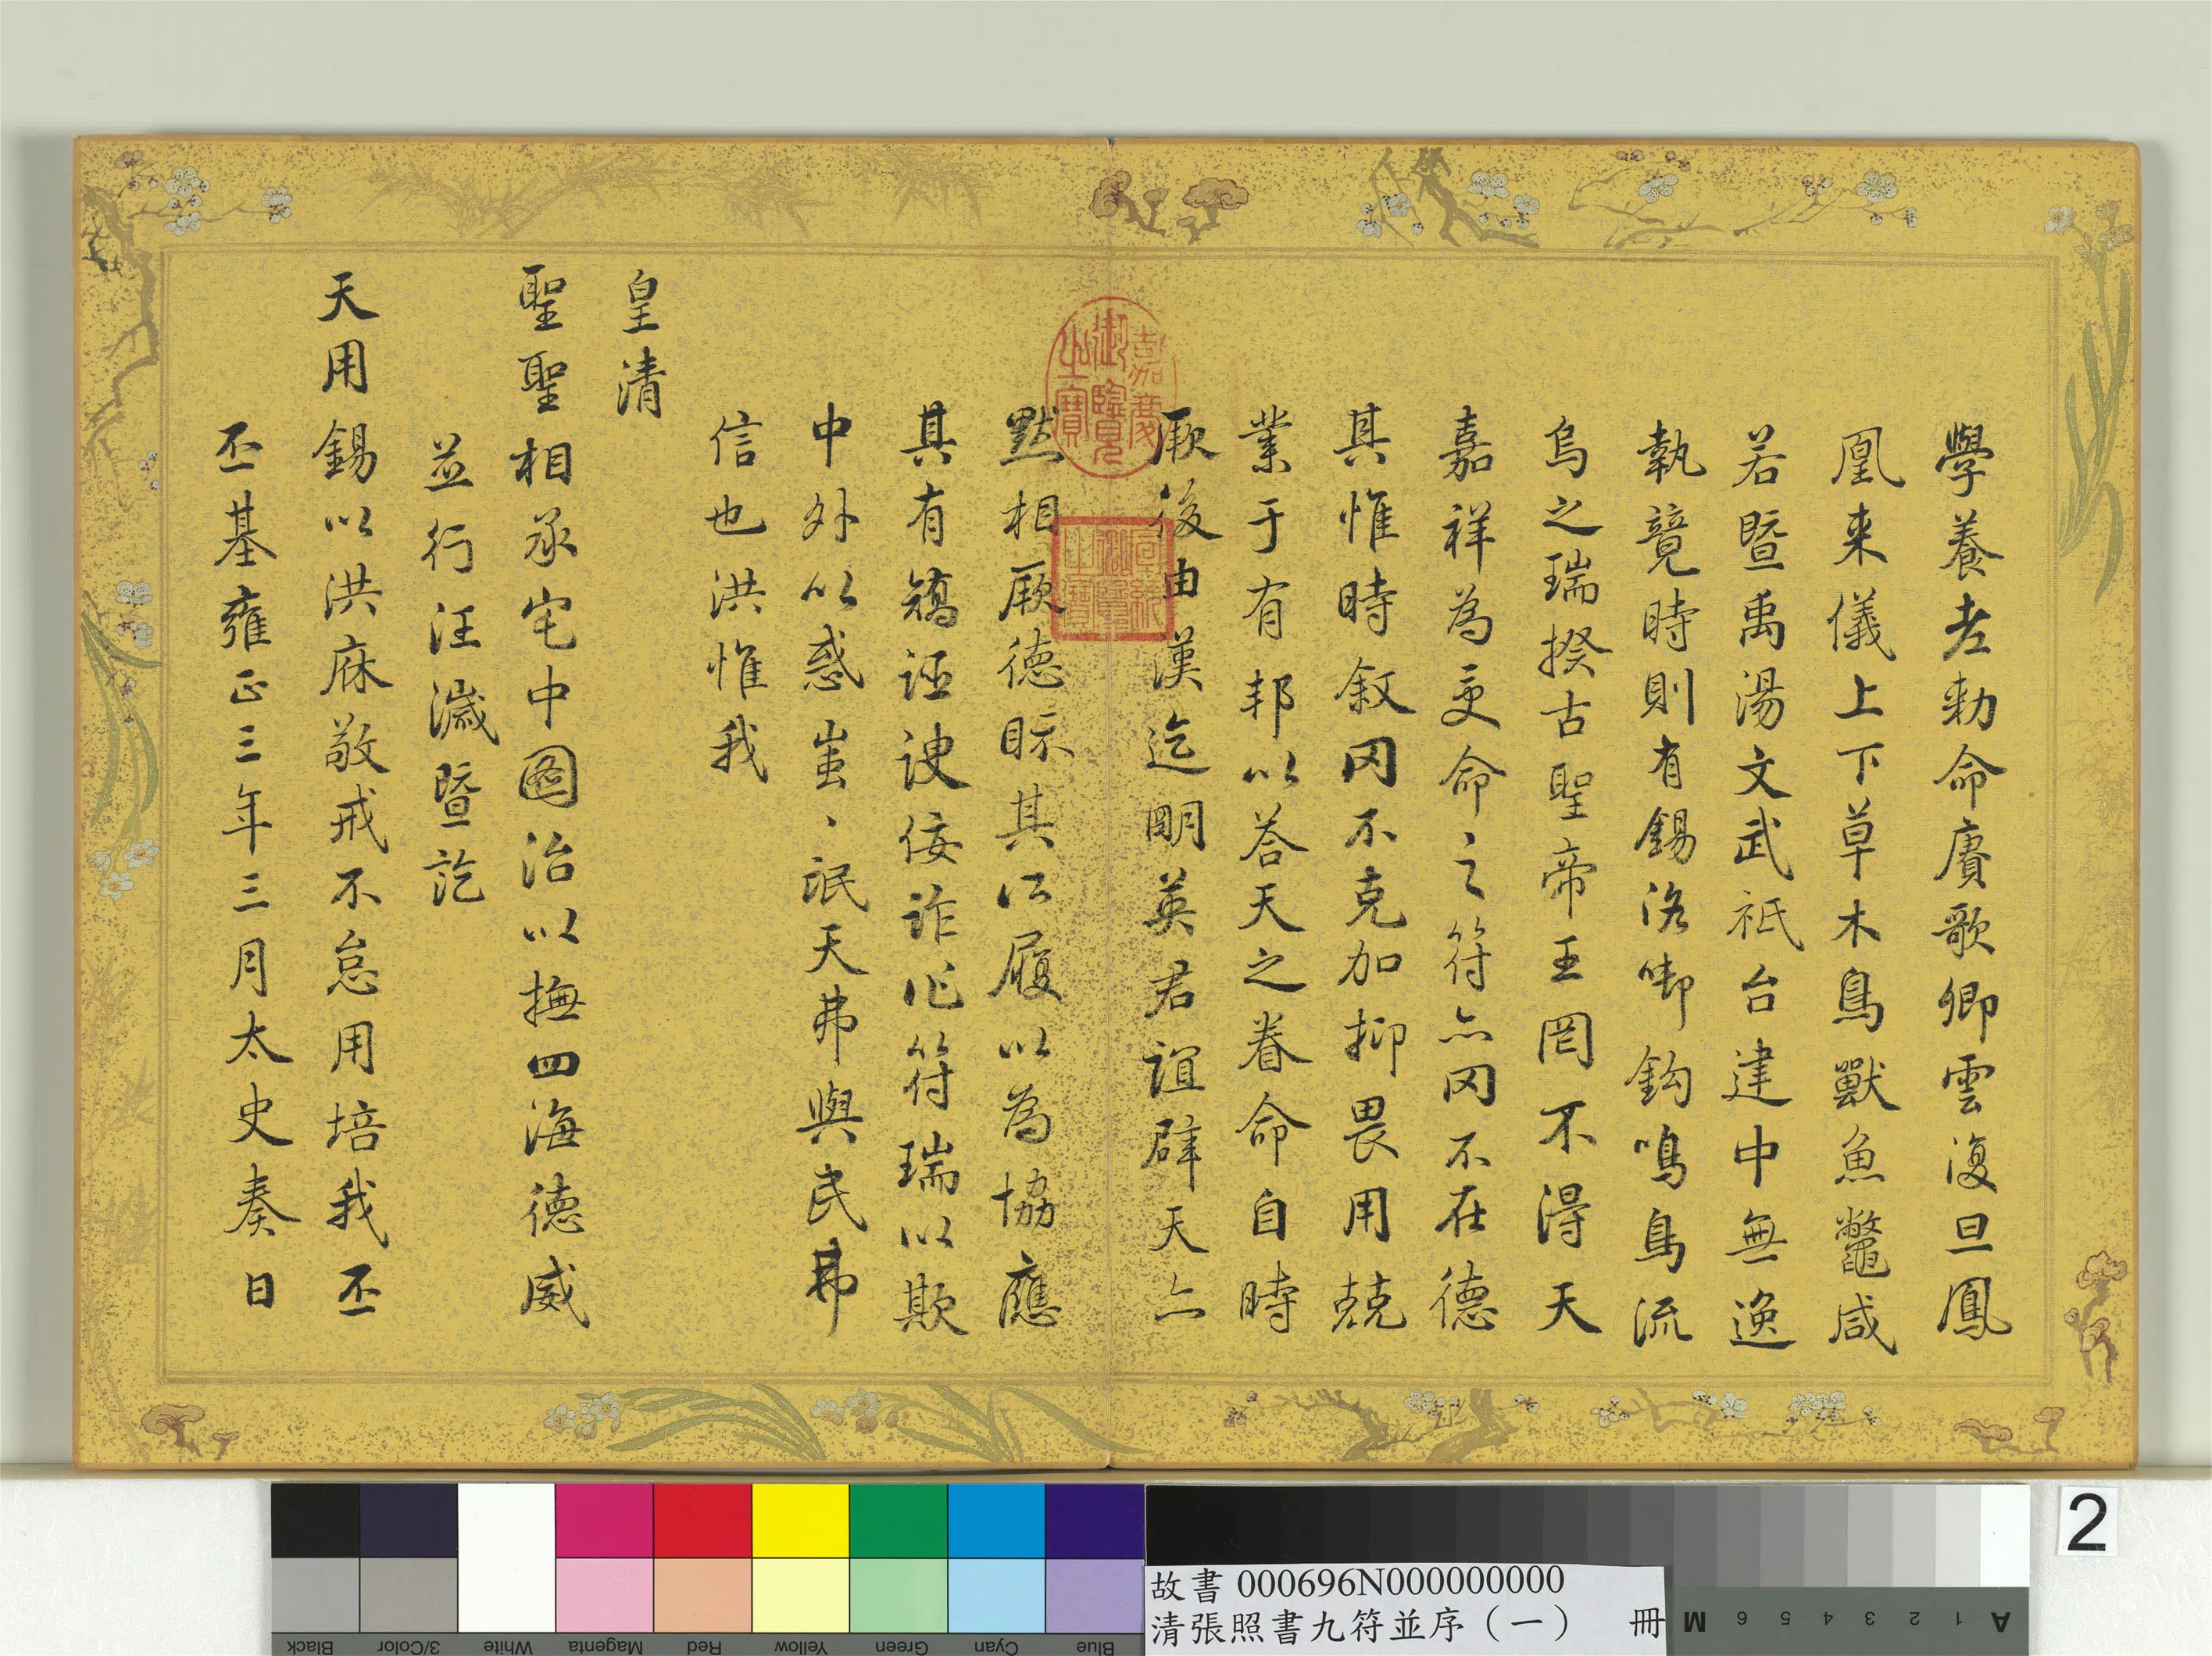 學養老勅命賡歌卿雲復旦鳳
凰来儀上下草木鳥獸魚鼈咸
若暨禹湯文武祗台建中無逸
執競時則有錫洛啣鈎鳴鳥流
烏之瑞揆古聖帝王罔不得天
嘉祥為受命之符亦罔不在德
其惟時叙罔不克加抑畏用兢
業于有邦以荅天之眷命自時
厥後由漢迄明英君誼辟天亦
黙相厥德眎其所履以為協應
其有矯誣諛佞詐作符瑞以欺
中外以惑蚩、氓天弗與民弗
信也洪惟我
皇清
聖聖相承宅中圖治以撫四海德威
並行汪濊暨訖
天用錫以洪庥敬戒不怠用培我丕
丕基雍正三年三月太史奏日
嘉慶御覽之寶
宣統御覽之寶
Black
3/Color
White
Magenta
Red
Yellow
Green
Cyan
Blue
A 1 2 3 4 5 6 M
2
故書 000696N000000000
清張照書九符並序（一） 冊